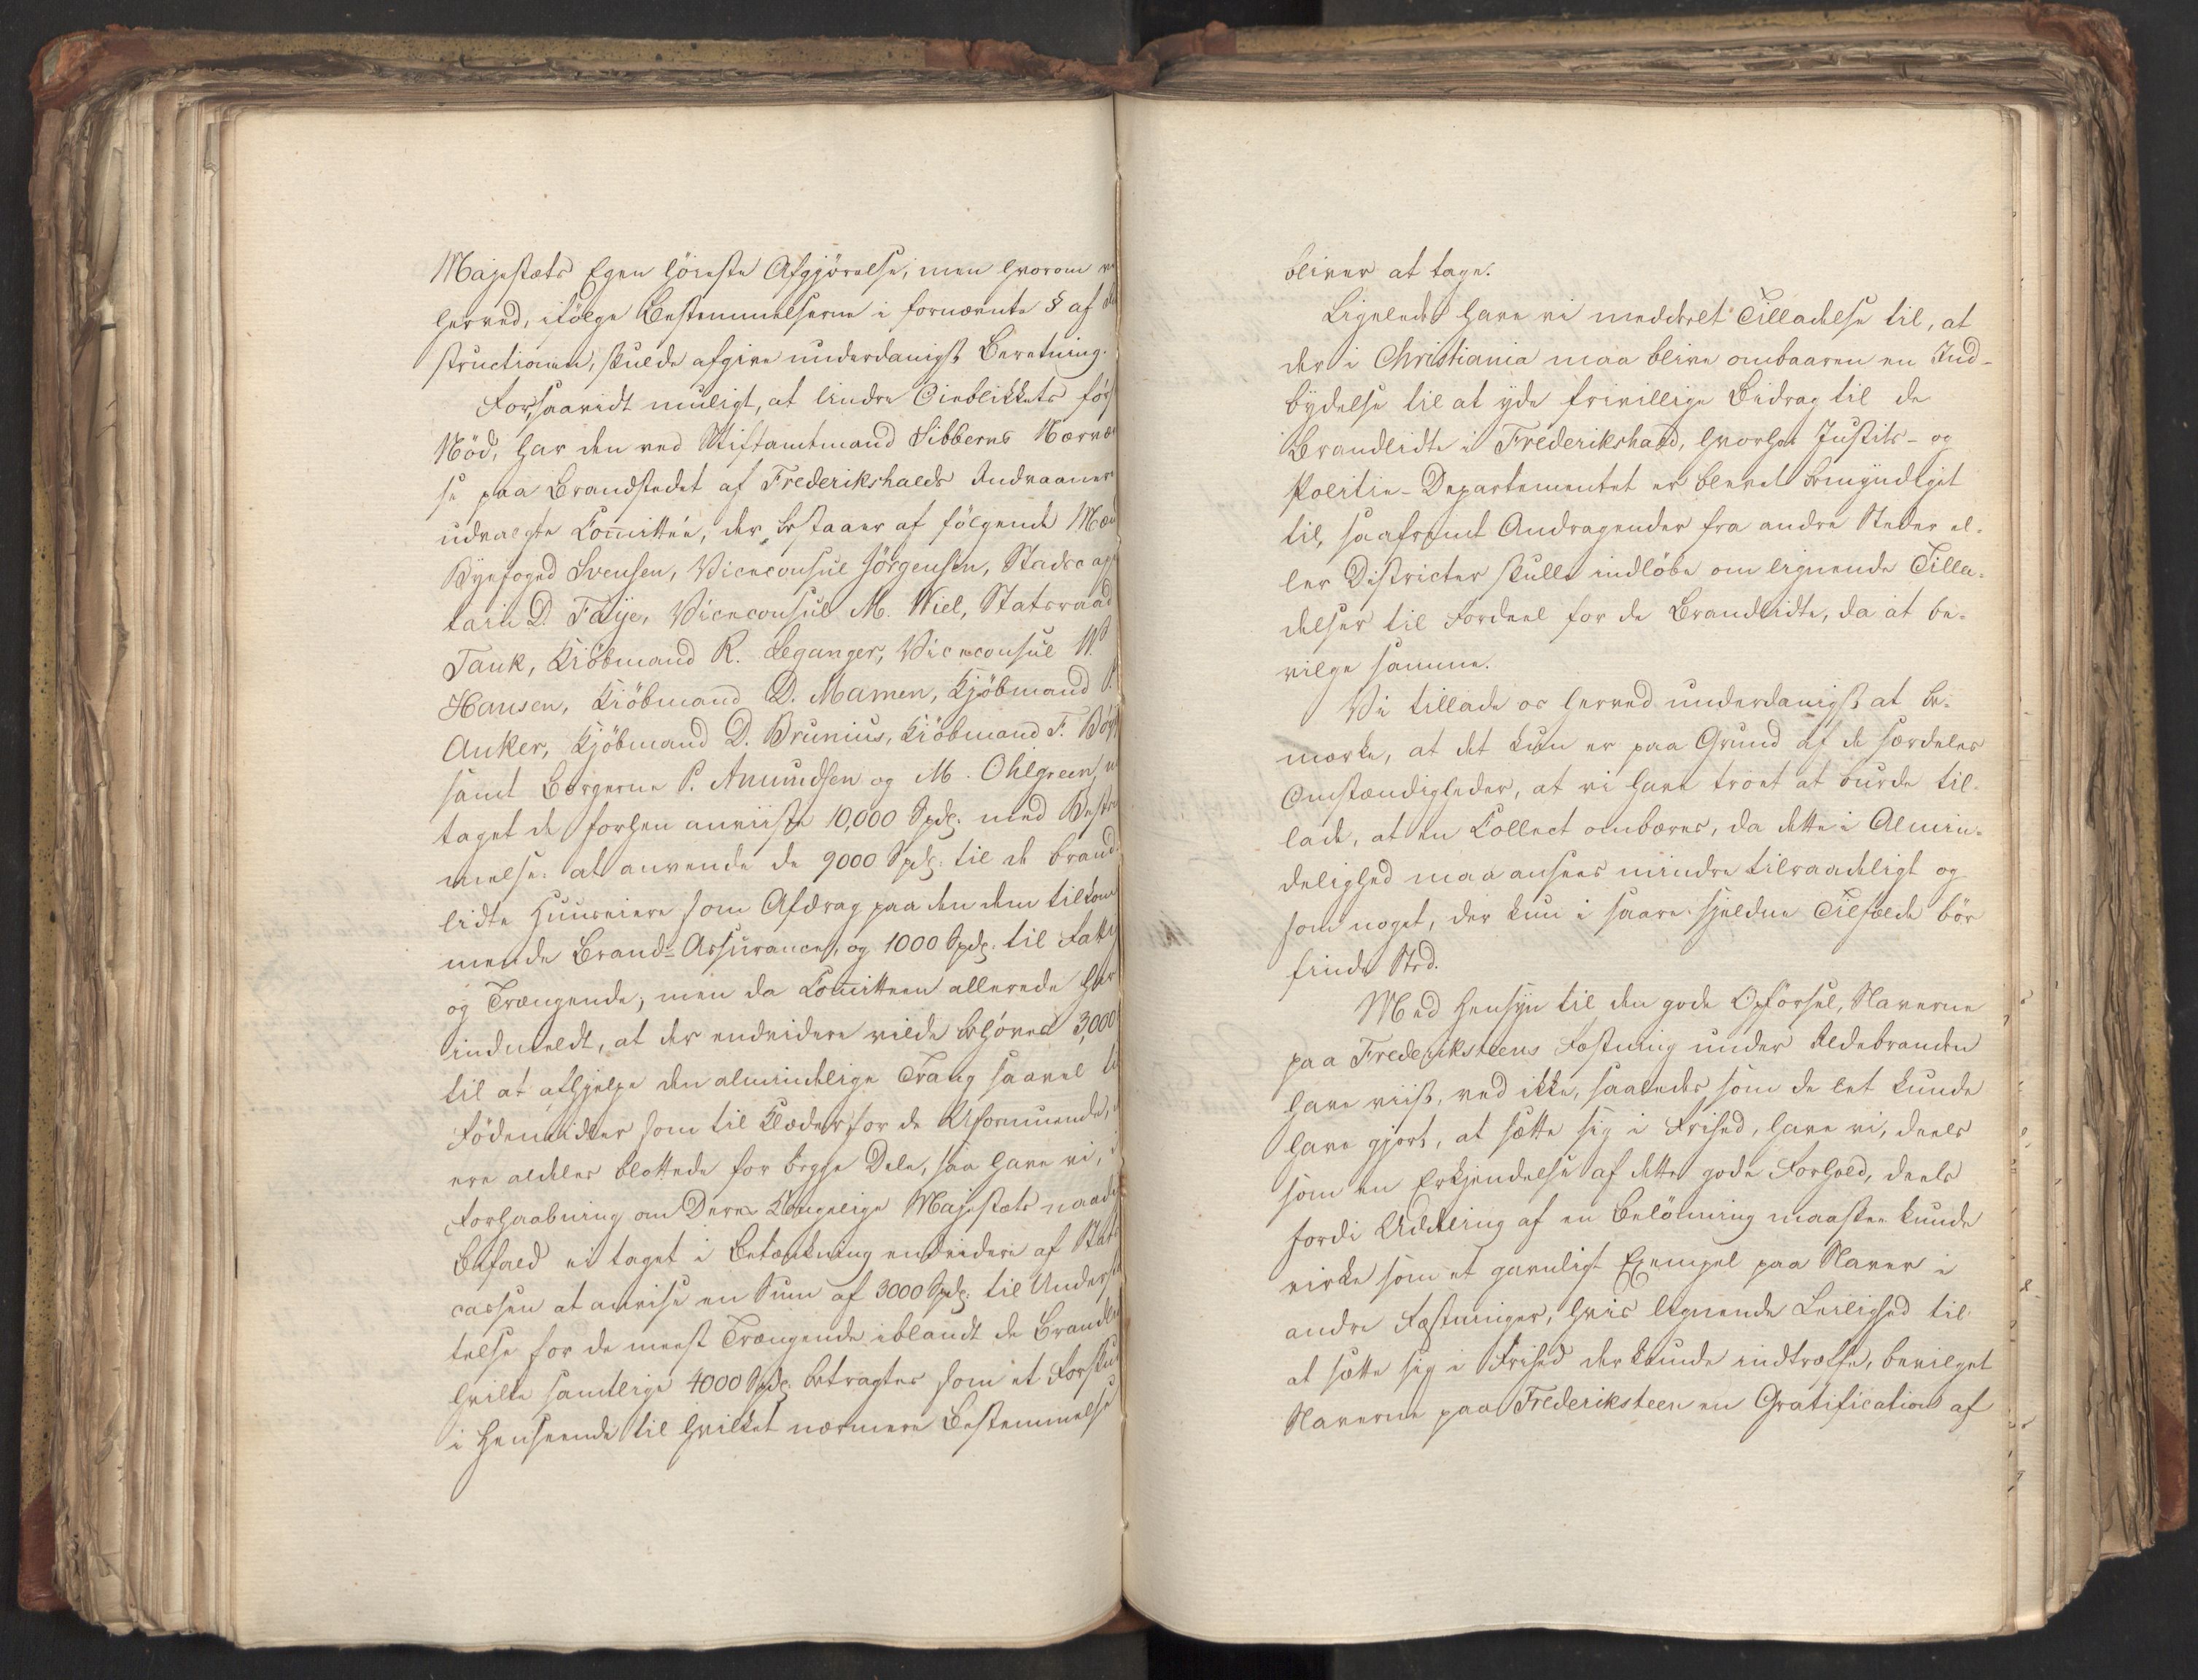 Majestæts Egen høieste Afgjørelse, men hvorom vi
herved, ifølge Bestemmelserne i fornævnte § af
structionen, skulde afgive underdanigst Beretning.
For, saavidt muligt, at lindre Øieblikkets
Nød, har den ved Stiftamtmand Sibberns Nærvæ
se paa Brandstedet af Frederikshalds Indvaanere
udvalgte Comittee, der bestaaer af følgende Mæn
Byefoged Svensen, Viceconsul Jørgensen, Stads
tain D. Faÿe, Viceconsul M. Wiel, Statsraad
Tank, Kiöbmand R. Leganger, Viceconsul W.
Hansen, Kiöbmand D. Mamen, Kjöbmand P.
Anker, Kjöbmand D. Brunius, Kiöbmand F.
samt Borgerne P. Amundsen og M. Ohlgreen,
taget de forhen anviiste 10,000 Spd. med Beste
melse: at anvende de 9000 Spd. til de brand
lidte Huuseiere som Afdrag paa den dem tilkom
mende Brand-Assurance, og 1000 Spd. til Fatti
og Trængende; men da Comitteen allerede har
indmeldt, at der endvidere vilde behøves 3,000
til at afhjelpe den almindelige Trang saavel ti
Födemidler som til Klæder for de Uformuende,
ere aldeles blottede for begge Dele, saa have vi, i
Forhaabning om Deres Kongelige Majestæts naadi
Bifald ei taget i Betænkning endvidere af Stats
cassen at anvise en Sum af 3000 Spd. til Underst
telse for de meest Trængende iblandt de Brandli
hvilke samtlige 4000 Spd. betragtes som et Forsku
i Henseende til hvilket nærmere Bestemmelse
bliver at tage.
Ligeledes have vi meddeelt Tilladelse til, at
der i Christiania maa blive ombaaren en Ind-
bydelse til at yde frivillige Bidrag til de
Brandlidte i Frederikshald, hvorhos Justits- og
Politie-Departementet er blevet bemyndiget
til, saafremt Andragender fra andre Steder el-
ler Districter skulle indløbe om lignende Tilla-
delser til Fordeel for de Brandlidte, da at be-
vilge samme.
Vi tillade os herved underdanigst at be-
mærke, at det kun er paa Grund af de særdeles
Omstændigheder, at vi have troet at burde til-
lade, at en Collect ombæres, da dette i Almin-
delighed maa ansees mindre tilraadeligt og
som noget, der kun i saare sjeldne Tilfælde bör
finde Sted.
Med Hensyn til den gode Opførsel, Slaverne
paa Frederiksteens Fæstning under Ildebranden
have viist, ved ikke, saaledes som de let kunde
have gjort, at sætte sig i Frihed, have vi, deels
som en Erkjendelse af dette gode Forhold, deels
fordi Uddeling af en Belønning maaskee kunde
virke som et gavnligt Exempel paa Slaver i
andre Fæstninger, hvis lignende Leilighed til
at sætte sig i Frihed der kunde indtræffe, bevilget
Slaverne paa Frederiksteen en Gratification af